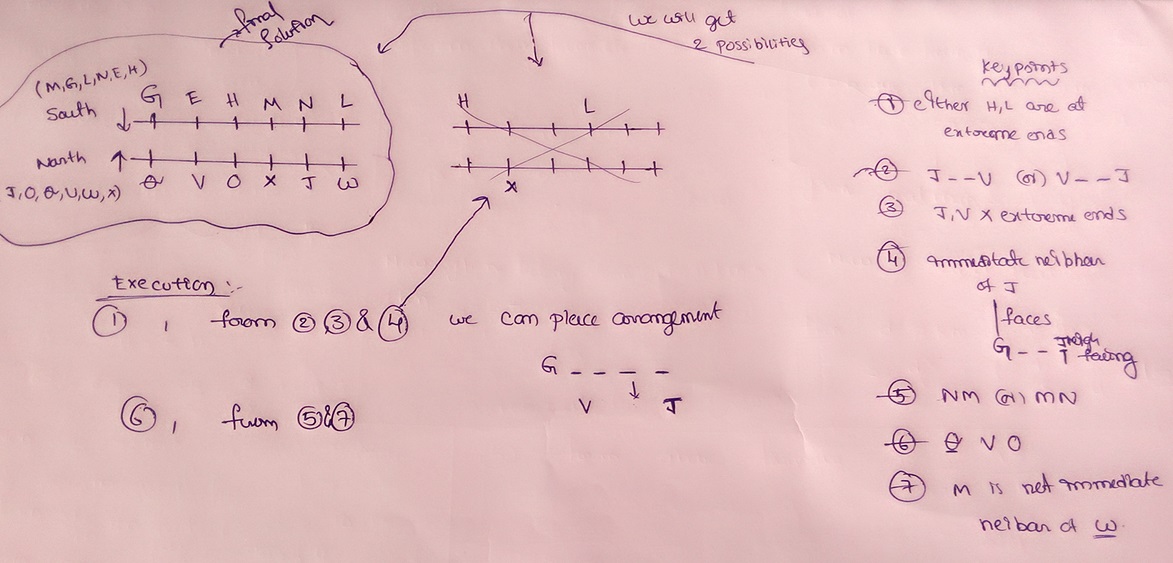 final
Solution
(M,G,L,N,E,H)
South
G E H M N L
Nonth
J,O,Q,U,W,X)
Q V O X J W
we will get
2 possibilities
H L
X
Key points
① either H,L are at
extoreme ends
② J--V (or) V--J
③ J,V X extoreme ends
④
of J
faces
G--
J facing
⑤ NM (or) MN
⑥ Q V O
⑦ M is not immediate
neiban of W.
Execution :-
①, from ② ③ & ④ we can place arrangement
G _ _ _ _
V ↓ J
⑥, from ⑤&⑦